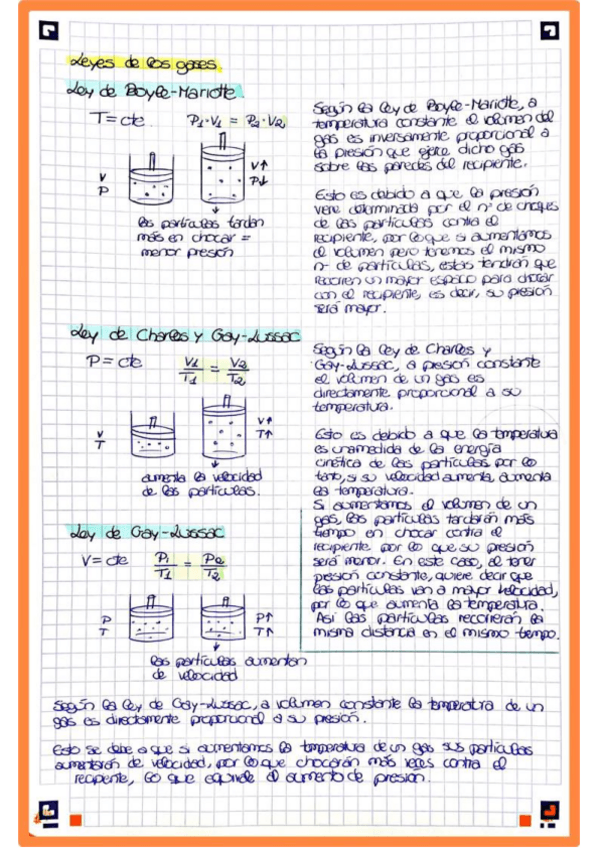 Leyes de los gases.
Ley de Boyle-Mariotte
T = cte P1·V1 = P2·V2
V
P
V↑
P↓
las partículas tardan
más en chocar =
menor presión
Según la ley de Boyle-Mariotte, a
temperatura constante el volumen del
gas es inversamente proporcional a
la presión que ejerce dicho gas
sobre las paredes del recipiente.
Esto es debido a que la presión
viene determinada por el nº de choques
de las partículas contra el
recipiente, por lo que si aumentamos
el volumen pero tenemos el mismo
nº de partículas, estas tendrán que
recorrer un mayor espacio para chocar
con el recipiente, es decir, su presión
será mayor.
Ley de Charles y Gay-Lussac
P = cte V1/T1 = V2/T2
V
T
V↑
T↑
aumenta la velocidad
de las partículas.
Según la ley de Charles y
Gay-Lussac, a presión constante
el volumen de un gas es
directamente proporcional a su
temperatura.
Esto es debido a que la temperatura
es una medida de la energía
cinética de las partículas, por lo
tanto, si su velocidad aumenta, aumenta
la temperatura.
Si aumentamos el volumen de un
gas, las partículas tardarán más
tiempo en chocar contra el
recipiente por lo que su presión
será menor. En este caso, al tener
presión constante, quiere decir que
las partículas van a mayor velocidad,
por lo que aumenta la temperatura.
Así las partículas recorrerán la
misma distancia en el mismo tiempo.
Ley de Gay-Lussac
V = cte P1/T1 = P2/T2
P
T
P↑
T↑
las partículas aumentan
de velocidad
Según la ley de Gay-Lussac, a volumen constante la temperatura de un
gas es directamente proporcional a su presión.
Esto se debe a que si aumentamos la temperatura de un gas sus partículas
aumentarán de velocidad, por lo que chocarán más veces contra el
recipiente, lo que equivale al aumento de presión.